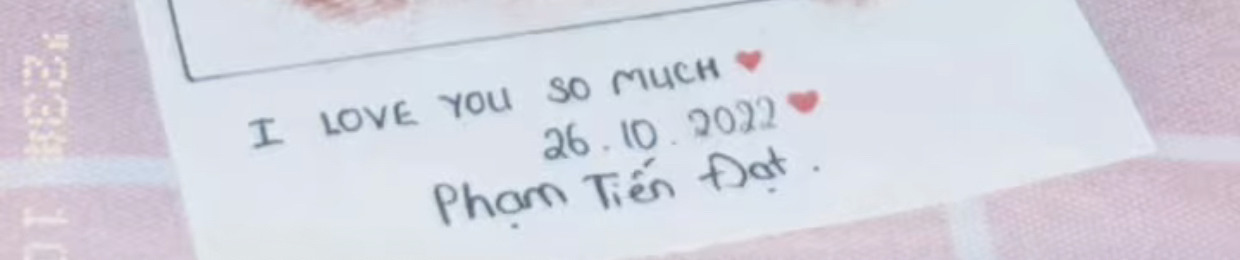 I LOVE YOU SO MUCH ♥
26.10.2022 ♥
Phạm Tiến Đạt.